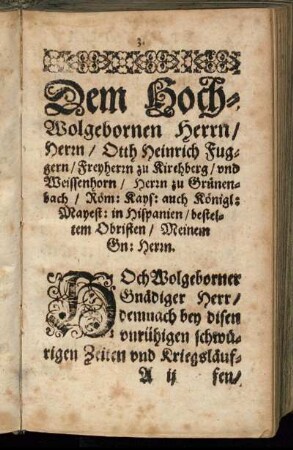 3.
Dem Hoch-
Wolgebornen Herrn/
Herrn / Otth Heinrich Fug-
gern / Freyherrn zu Kirchberg / vnd
Weissenhorn / Herrn zu Grünen-
bach / Röm: Kays: auch Königl:
Mayest: in Hispanien / bestel-
tem Obristen / Meinem
Gn: Herrn.
HOch Wolgeborner
Gnädiger Herr/
demnach bey disen
vnrühigen schwü-
rigen Zeiten vnd Kriegsläuf-
A ij fen/